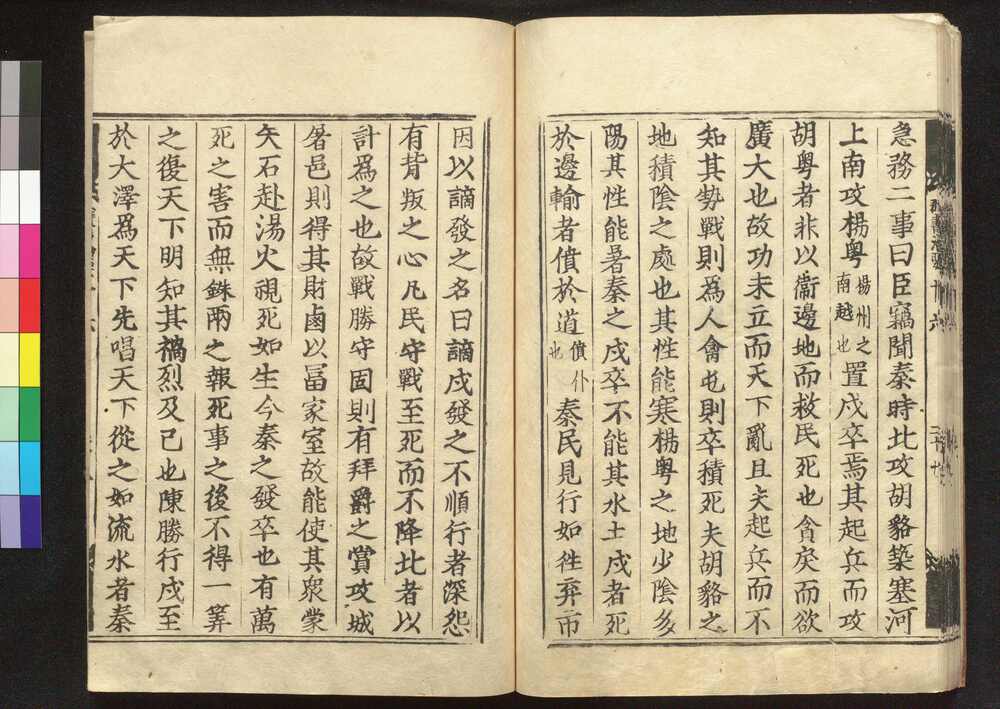 急務二事曰臣竊聞秦時北攻胡貉築塞河
上南攻楊粤楊州之南越也置戍卒焉其起兵而攻
胡粤者非以衞邊地而救民死也貪戾而欲
廣大也故功未立而天下亂且夫起兵而不
知其勢戰則為人禽屯則卒積死夫胡貉之
地積陰之處也其性能寒楊粤之地少陰多
陽其性能暑秦之戍卒不能其水土戍者死
於邊輸者僨於道僨仆也秦民見行如徃弃市
因以謫發之名曰謫戍發之不順行者深怨
有背叛之心凡民守戰至死而不降北者以
計爲之也故戰勝守固則有拜爵之賞攻城
屠邑則得其財鹵以冨家室故能使其衆蒙
矢石赴湯火視死如生今秦之發卒也有萬
死之害而無銖兩之報死事之後不得一筭
之復天下明知其禍烈及己也陳勝行戍至
於大澤爲天下先唱天下從之如流水者秦